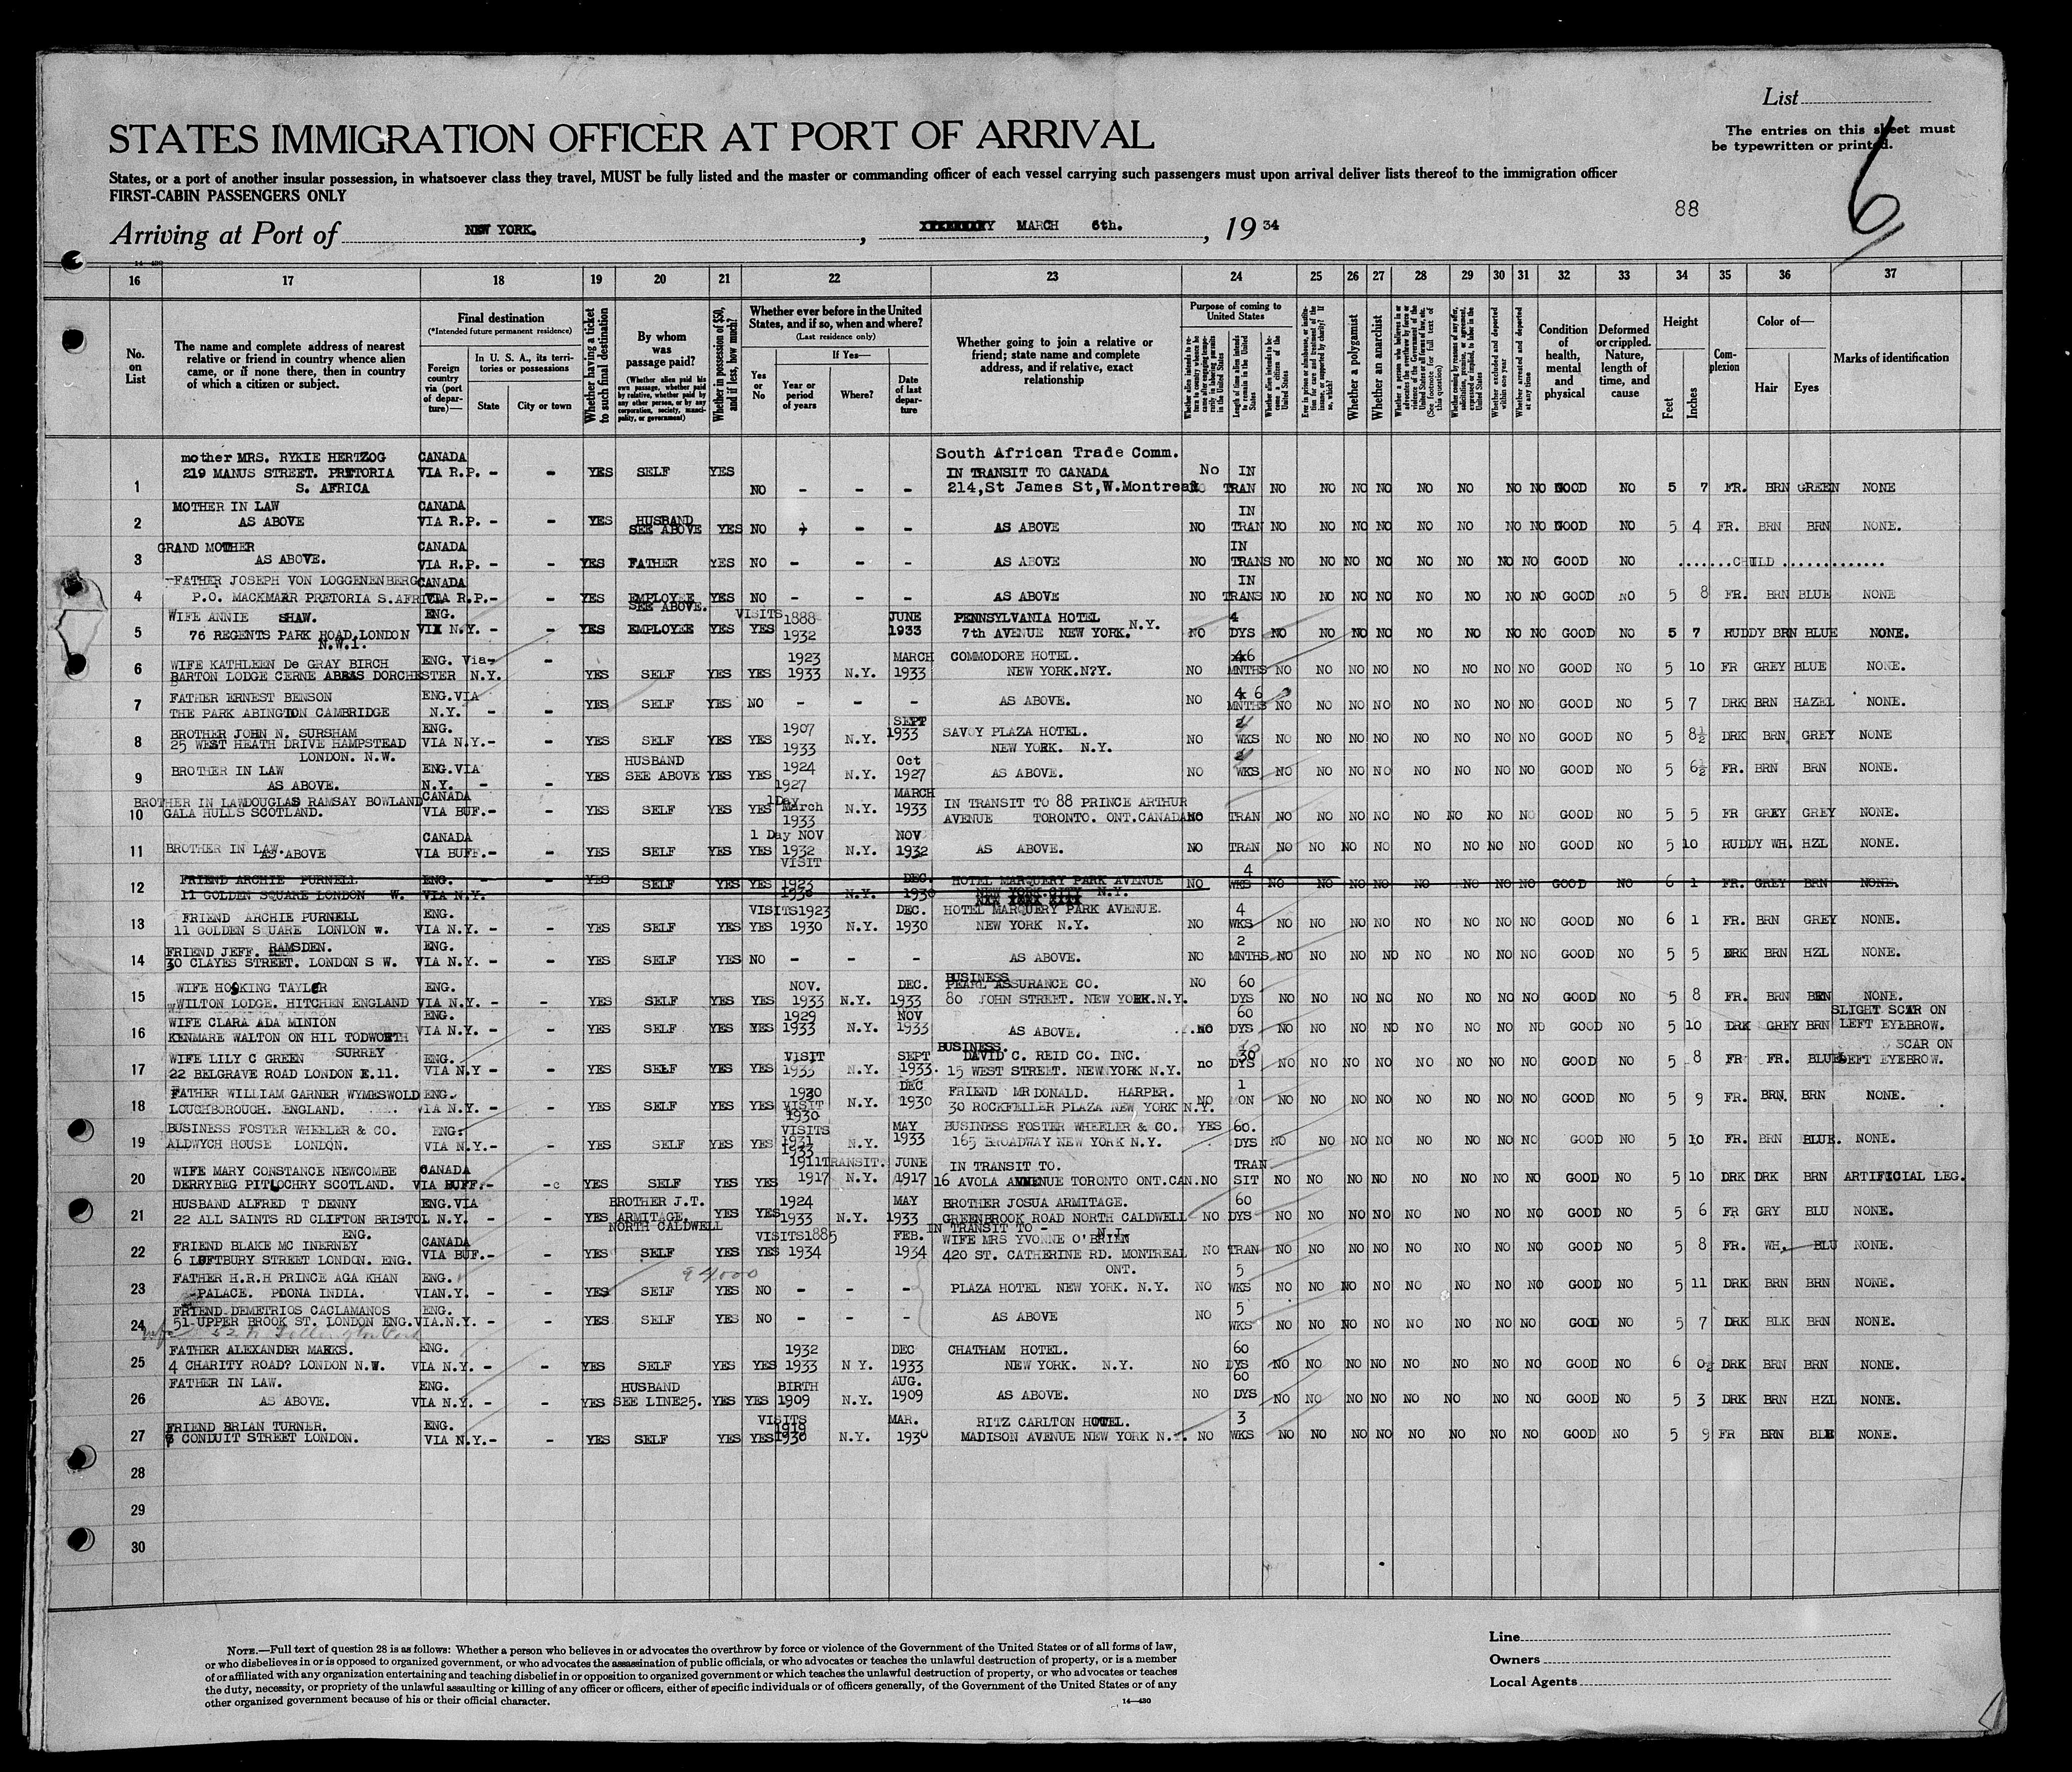 List
STATES IMMIGRATION OFFICER AT PORT OF ARRIVAL
The entries on this sheet must
be typewritten or printed.
6
States, or a port of another insular possession, in whatsoever class they travel, MUST be fully listed and the master or commanding officer of each vessel carrying such passengers must upon arrival deliver lists thereof to the immigration officer
FIRST-CABIN PASSENGERS ONLY
88
Arriving at Port of NEW YORK. , MARCH 6th. , 19 34
14—430
16 17 18 19 20 21 22 23 24 25 26 27 28 29 30 31 32 33 34 35 36 37
No. on List
The name and complete address of nearest relative or friend in country whence alien came, or if none there, then in country of which a citizen or subject.
Final destination
(*Intended future permanent residence)
Foreign country via (port of departure)—
In U. S. A., its territories or possessions
State City or town
Whether having a ticket to such final destination
By whom was passage paid?
(Whether alien paid his own passage, whether paid by relative, whether paid by any other person, or by any corporation, society, municipality, or government)
Whether in possession of $50, and if less, how much?
Whether ever before in the United States, and if so, when and where?
(Last residence only)
Yes or No
If Yes—
Year or period of years
Where?
Date of last departure
Whether going to join a relative or friend; state name and complete address, and if relative, exact relationship
Purpose of coming to United States
Length of time alien intends to remain in the United States
Whether alien intends to become a citizen of the United States
Whether a polygamist
Whether an anarchist
Whether excluded and deported within one year
Whether arrested and deported at any time
Condition of health, mental and physical
Deformed or crippled. Nature, length of time, and cause
Height
Feet Inches
Complexion
Color of—
Hair Eyes
Marks of identification
mother MRS. RYKIE HERTZOG CANADA South African Trade Comm.
219 MANUS STREET. PRETORIA VIA R.P. - - YES SELF YES IN TRANSIT TO CANADA No IN
1 S. AFRICA NO - - - 214,St James St,W.Montreal NO TRAN NO NO NO NO NO NO NO NO GOOD NO 5 7 FR. BRN GREEN NONE
MOTHER IN LAW CANADA IN
2 AS ABOVE VIA R.P. - - YES HUSBAND SEE ABOVE YES NO - - AS ABOVE NO TRAN NO NO NO NO NO NO NO NO GOOD NO 5 4 FR. BRN BRN NONE.
GRAND MOTHER CANADA IN
3 AS ABOVE. VIA R.P. - - YES FATHER YES NO - - - AS ABOVE NO TRANS NO NO NO NO NO NO NO NO GOOD NO .......CHILD .............
FATHER JOSEPH VON LOGGENENBERG CANADA IN
4 P.O. MACKMARR PRETORIA S.AFRICA VIA R.P.- - YES EMPLOYEE SEE ABOVE. YES NO - - - AS ABOVE NO TRANS NO NO NO NO NO NO NO NO GOOD NO 5 8 FR. BRN BLUE NONE
WIFE ANNIE SHAW. ENG. VISITS 1888 JUNE PENNSYLVANIA HOTEL 4
5 76 REGENTS PARK ROAD,LONDON VIA N.Y. - - YES EMPLOYEE YES YES 1932 1933 7th AVENUE NEW YORK. N.Y. NO DYS NO NO NO NO NO NO NO NO GOOD NO 5 7 RUDDY BRN BLUE NONE.
N.W.1.
6 WIFE KATHLEEN De GRAY BIRCH ENG. Via- - 1923 MARCH COMMODORE HOTEL. 6
BARTON LODGE CERNE ABBAS DORCHESTER N.Y. YES SELF YES YES 1933 N.Y. 1933 NEW YORK.N?Y. NO MNTHS NO NO NO NO NO NO NO NO GOOD NO 5 10 FR GREY BLUE NONE.
FATHER ERNEST BENSON ENG.VIA 6
7 THE PARK ABINGTON CAMBRIDGE N.Y. - - YES SELF YES NO - - - AS ABOVE. NO MNTHS NO NO NO NO NO NO NO NO GOOD NO 5 7 DRK BRN HAZEL NONE.
BROTHER JOHN N. SURSHAM ENG. 1907 SEPT SAVOY PLAZA HOTEL.
8 25 WEST HEATH DRIVE HAMPSTEAD VIA N.Y.- - YES SELF YES YES 1933 N.Y. 1933 NEW YORK. N.Y. NO WKS NO NO NO NO NO NO NO NO GOOD NO 5 8½ DRK BRN GREY NONE
LONDON. N.W.
9 BROTHER IN LAW ENG.VIA HUSBAND 1924 Oct
AS ABOVE. N.Y. - - YES SEE ABOVE YES YES 1927 N.Y. 1927 AS ABOVE. NO WKS NO NO NO NO NO NO NO NO GOOD NO 5 6½ FR. BRN BRN NONE.
BROTHER IN LAW DOUGLAS RAMSAY BOWLAND CANADA 1Day MARCH IN TRANSIT TO 88 PRINCE ARTHUR
10 GALA HULLS SCOTLAND. VIA BUF. - - YES SELF YES YES March 1933 N.Y. 1933 AVENUE TORONTO. ONT.CANADA NO TRAN NO NO NO NO NO NO NO NO GOOD NO 5 5 FR GREY GREY NONE.
CANADA 1 Day NOV NOV
11 BROTHER IN LAW. AS ABOVE VIA BUFF.- - YES SELF YES YES 1932 N.Y. 1932 AS ABOVE. NO TRAN NO NO NO NO NO NO NO NO GOOD NO 5 10 RUDDY WH. HZL NONE.
VISIT
12 FRIEND ARCHIE PURNELL ENG. - - YES SELF YES YES 1923 DEC. HOTEL MARQUERY PARK AVENUE 4
11 GOLDEN SQUARE LONDON W. VIA N.Y. 1930 N.Y. 1930 NEW YORK CITY N.Y. NO WKS NO NO NO NO NO NO NO NO GOOD NO 6 1 FR. GREY BRN NONE.
FRIEND ARCHIE PURNELL ENG. VISITS1923 DEC. HOTEL MARQUERY PARK AVENUE. 4
13 11 GOLDEN SQUARE LONDON w. VIA N.Y. - - YES SELF YES YES 1930 N.Y. 1930 NEW YORK N.Y. NO WKS NO NO NO NO NO NO NO NO GOOD NO 6 1 FR. BRN GREY NONE.
FRIEND JEFF. RAMSDEN. ENG. 2
14 30 CLAYES STREET. LONDON S W. VIA N.Y. - - YES SELF YES NO - - - AS ABOVE. NO MNTHS NO NO NO NO NO NO NO NO GOOD NO 5 5 DRK BRN HZL NONE.
WIFE HOSKING TAYLER ENG. NOV. DEC. BUSINESS PEARL ASSURANCE CO. NO 60
15 WILTON LODGE. HITCHEN ENGLAND VIA N.Y. - - YES SELF YES YES 1933 N.Y. 1933 80 JOHN STREET. NEW YORK.N.Y. DYS NO NO NO NO NO NO NO NO GOOD NO 5 8 FR. BRN BRN NONE.
WIFE CLARA ADA MINION ENG. 1929 NOV 60 SLIGHT SCAR ON
16 KENMARE WALTON ON HIL TODWORTH VIA N.Y. - - YES SELF YES YES 1933 N.Y. 1933 AS ABOVE. NO DYS NO NO NO NO NO NO NO NO GOOD NO 5 10 DRK GREY BRN LEFT EYEBROW.
SURREY
WIFE LILY C GREEN ENG. VISIT SEPT BUSINESS. DAVID C. REID CO. INC. 30 SCAR ON
17 22 BELGRAVE ROAD LONDON E.11. VIA N.Y - - YES SELF YES YES 1933 N.Y. 1933. 15 WEST STREET. NEWYORK N.Y. no DYS NO NO NO NO NO NO NO NO GOOD NO 5 8 FR FR. BLUE LEFT EYEBROW.
FATHER WILLIAM GARNER WYMESWOLD ENG. 1930 DEC FRIEND MR DONALD. HARPER. 1
18 LOUCHBOROUGH. ENGLAND. VIA N.Y. - - YES SELF YES YES VISIT 1930 N.Y. 1930 30 ROCKFELLER PLAZA NEW YORK N.Y. NO MON NO NO NO NO NO NO NO NO GOOD NO 5 9 FR. BRN. BRN NONE.
BUSINESS FOSTER WHEELER & CO. ENG. VISITS MAY BUSINESS FOSTER WHEELER & CO. YES 60.
19 ALDWYCH HOUSE LONDON. VIA N.Y.- - YES SELF YES YES 1931 1933 N.Y. 1933 165 BROADWAY NEW YORK N.Y. DYS NO NO NO NO NO NO NO NO GOOD NO 5 10 FR. BRN BLUE. NONE.
WIFE MARY CONSTANCE NEWCOMBE CANADA 1911TRANSIT. JUNE IN TRANSIT TO. TRAN
20 DERRYBEG PITLOCHRY SCOTLAND. VIA BUFF.- - YES SELF YES YES 1917 N.Y. 1917 16 AVOLA AVENUE TORONTO ONT.CAN. NO SIT NO NO NO NO NO NO NO NO GOOD NO 5 10 DRK DRK BRN ARTIFICIAL LEG.
HUSBAND ALFRED T DENNY ENG.VIA BROTHER J.T. 1924 MAY BROTHER JOSUA ARMITAGE. 60
21 22 ALL SAINTS RD CLIFTON BRISTOL N.Y. - - YES ARMITAGE. YES YES 1933 N.Y. 1933 GREENBROOK ROAD NORTH CALDWELL NO DYS NO NO NO NO NO NO NO NO GOOD NO 5 6 FR GRY BLU NONE.
ENG. NORTH CALDWELL N.J.
FRIEND BLAKE MC INERNEY CANADA VISITS1885 FEB. IN TRANSIT TO - WIFE MRS YVONNE O'BRIEN
22 6 LOFTBURY STREET LONDON. ENG. VIA BUF.- - YES SELF YES YES 1934 1934 420 ST. CATHERINE RD. MONTREAL NO TRAN NO NO NO NO NO NO NO NO GOOD NO 5 8 FR. WH. BLU NONE.
ONT.
FATHER H.R.H PRINCE AGA KHAN ENG. 5
23 PALACE. POONA INDIA. VIAN.Y. - - YES SELF YES NO - - - PLAZA HOTEL NEW YORK. N.Y. NO WKS NO NO NO NO NO NO NO NO GOOD NO 5 11 DRK BRN BRN NONE.
FRIEND DEMETRIOS CACLAMANOS ENG. 5
24 51 UPPER BROOK ST. LONDON ENG.VIA.N.Y. - - YES SELF YES NO - - - AS ABOVE NO WKS NO NO NO NO NO NO NO NO GOOD NO 5 7 DRK BLK BRN NONE.
FATHER ALEXANDER MARKS. ENG. 1932 DEC CHATHAM HOTEL. 60
25 4 CHARITY ROAD? LONDON N.W. VIA N.Y. - - YES SELF YES YES 1933 N Y. 1933 NEW YORK. N.Y. NO DYS NO NO NO NO NO NO NO NO GOOD NO 6 0½ DRK BRN BRN NONE.
FATHER IN LAW. ENG. HUSBAND BIRTH AUG. 60
26 AS ABOVE. VIA N.Y. - - YES SEE LINE25. YES YES 1909 N.Y. 1909 AS ABOVE. NO DYS NO NO NO NO NO NO NO NO GOOD NO 5 3 DRK BRN HZL NONE.
FRIEND BRIAN TURNER. ENG. VISITS 1919 MAR. RITZ CARLTON HOTEL. 3
27 CONDUIT STREET LONDON. VIA N.Y.- - YES SELF YES YES 1930 N.Y. 1930 MADISON AVENUE NEW YORK N.Y. NO WKS NO NO NO NO NO NO NO NO GOOD NO 5 9 FR BRN BLE NONE.
28
29
30
NOTE.—Full text of question 28 is as follows: Whether a person who believes in or advocates the overthrow by force or violence of the Government of the United States or of all forms of law,
or who disbelieves in or is opposed to organized government, or who advocates the assassination of public officials, or who advocates or teaches the unlawful destruction of property, or is a member
of or affiliated with any organization entertaining and teaching disbelief in or opposition to organized government or which teaches the unlawful destruction of property, or who advocates or teaches
the duty, necessity, or propriety of the unlawful assaulting or killing of any officer or officers, either of specific individuals or of officers generally, of the Government of the United States or of any
other organized government because of his or their official character.
14—430
Line
Owners
Local Agents